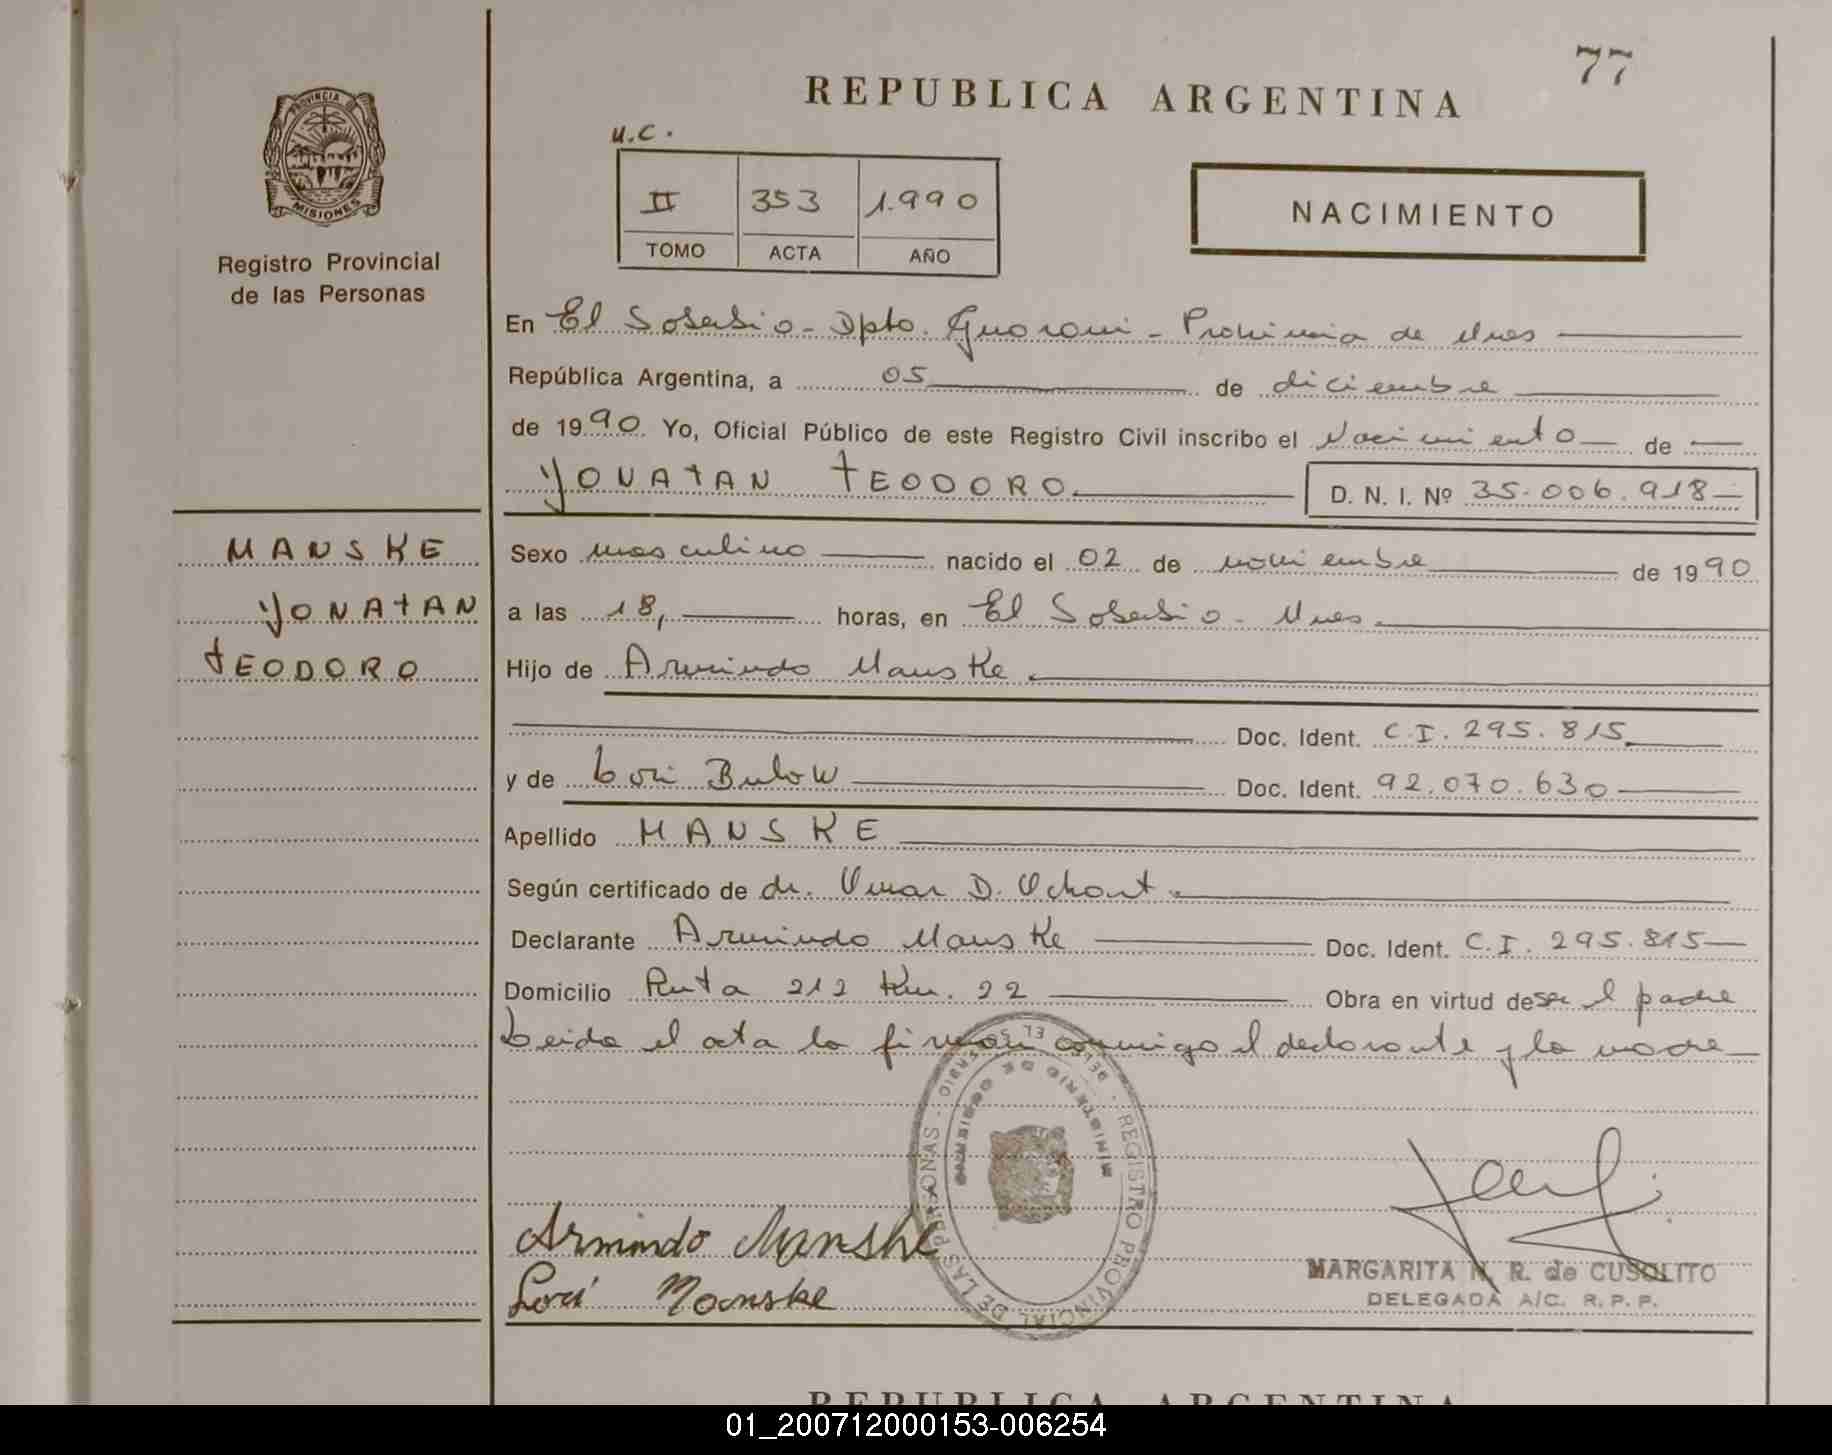 77
REPUBLICA ARGENTINA
PROVINCIA DE
MISIONES
Registro Provincial
de las Personas
u.c.
II 353 1.990
TOMO ACTA AÑO
NACIMIENTO
En El Soberbio - Dpto. Guarani - Provincia de Mnes
República Argentina, a 05 de diciembre
de 1990 Yo, Oficial Público de este Registro Civil inscribo el Nacimiento de
YONATAN TEODORO D. N. I. Nº 35.006.918
MANSKE
YONATAN
TEODORO
Sexo masculino nacido el 02 de noviembre de 1990
a las 18, horas, en El Soberbio - Mnes.
Hijo de Armindo Manske
Doc. Ident. C.I. 295.815
y de Lori Bulow Doc. Ident. 92.070.630
Apellido MANSKE
Según certificado de dr. Omar D.
Declarante Armindo Manske Doc. Ident. C.I. 295.815
Domicilio Ruta 212 Km. 22 Obra en virtud de ser el padre
Leida el acta la firman conmigo el declarante y la madre
REGISTRO PROVINCIAL DE LAS PERSONAS - DELEG. EL SOBERBIO
MINISTERIO DE GOBIERNO
Armindo Manske
Lori Manske
MARGARITA N. R. de CUSOLITO
DELEGADA A/C. R. P. P.
REPUBLICA ARGENTINA
01_200712000153-006254